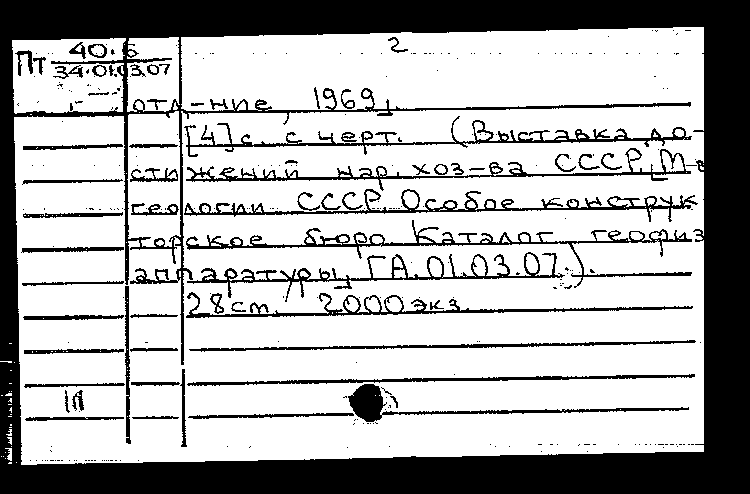 2
Пт 40.6
34.01.03.07
отд-ние, 1969].
[4]с. с черт. (Выставка до-
стижений нар. хоз-ва СССР. [М-в
геологии СССР. Особое конструк
торское бюро. Каталог геофиз
аппаратуры]. ГА.01.03.07.).
28 см. 2000 экз.